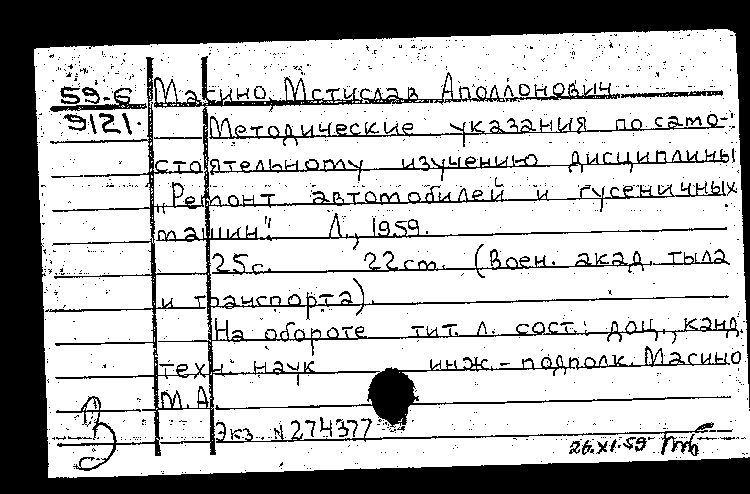 59-6 Масино, Мстислав Аполлонович
9121. Методические указания по само-
стоятельному изучению дисциплины
„Ремонт автомобилей и гусеничных
машин". Л., 1959.
25с. 22ст. (Воен. акад. тыла
и транспорта).
На обороте тит. л. сост.: доц., канд.
техн. наук инж.-подполк. Масино
М.А.
Экз. N274377
26.XI.59